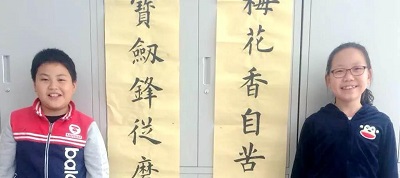 寶劔鋒從磨
梅花香自苦
bala